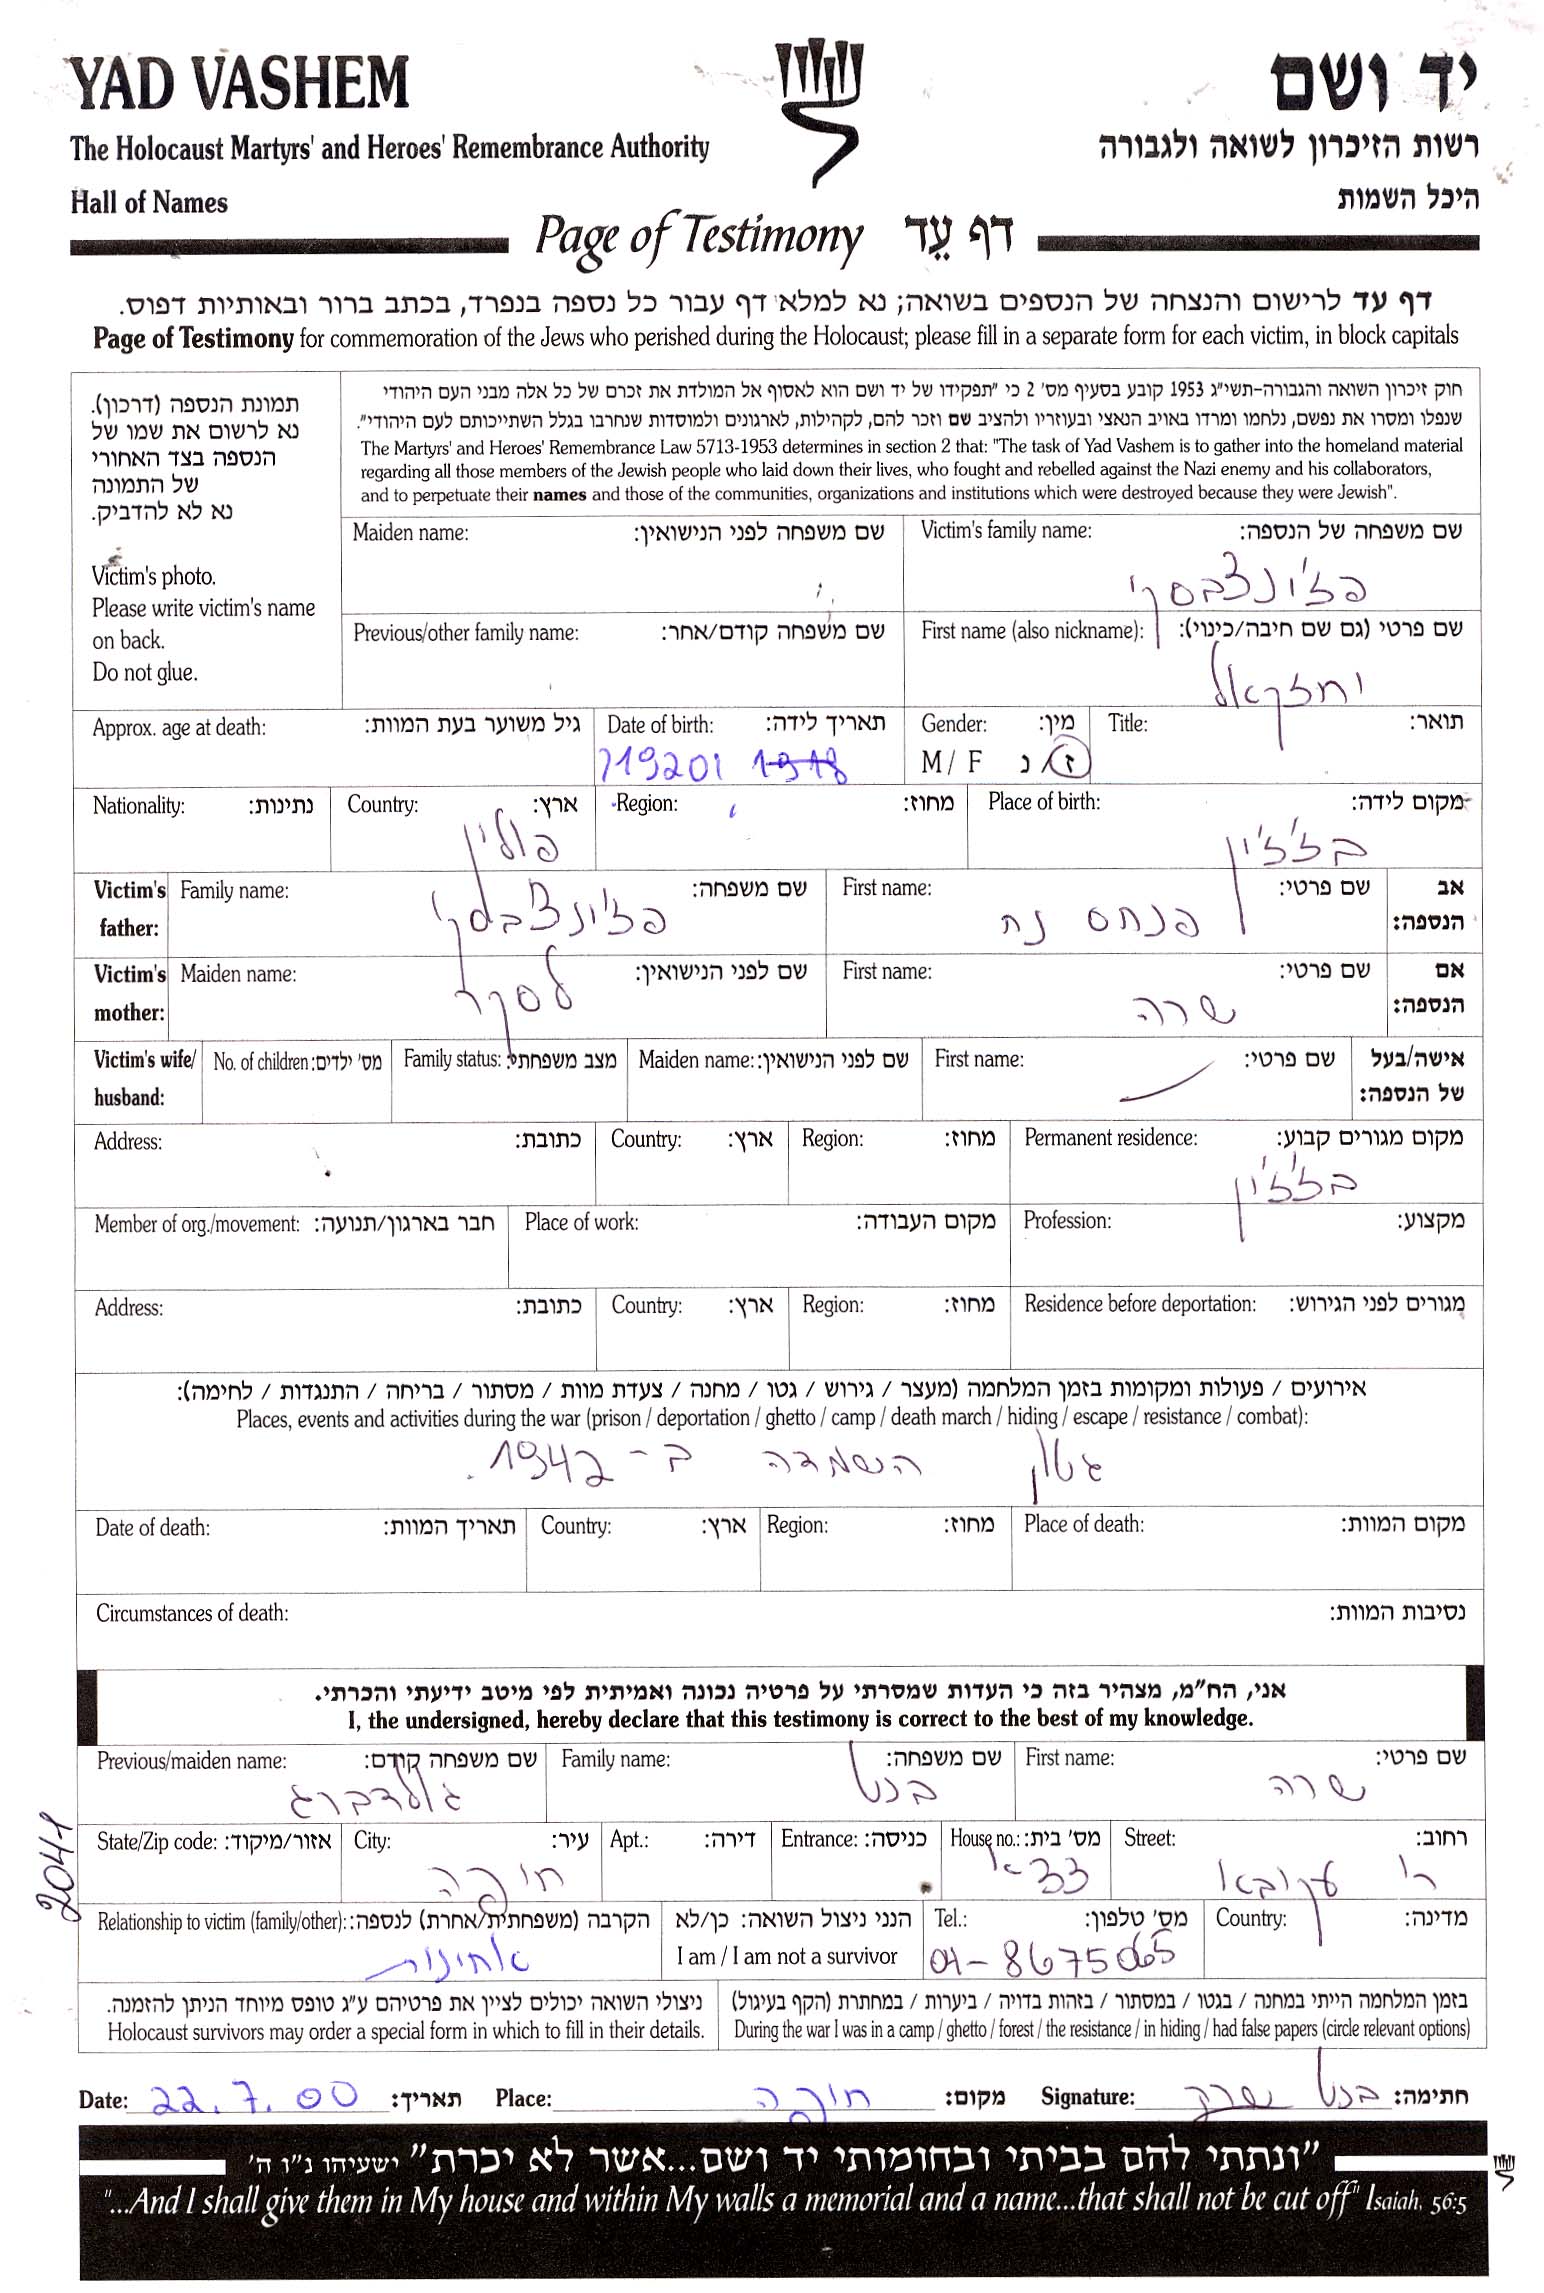 YAD VASHEM
יד ושם
The Holocaust Martyrs' and Heroes' Remembrance Authority
רשות הזיכרון לשואה ולגבורה
Hall of Names
היכל השמות
Page of Testimony דף עֵד
דף עד לרישום והנצחה של הנספים בשואה; נא למלא דף עבור כל נספה בנפרד, בכתב ברור ובאותיות דפוס.
Page of Testimony for commemoration of the Jews who perished during the Holocaust; please fill in a separate form for each victim, in block capitals
תמונת הנספה (דרכון).
נא לרשום את שמו של
הנספה בצד האחורי
של התמונה
נא לא להדביק.
Victim's photo.
Please write victim's name
on back.
Do not glue.
חוק זיכרון השואה והגבורה-תשי"ג 1953 קובע בסעיף מס' 2 כי "תפקידו של יד ושם הוא לאסוף אל המולדת את זכרם של כל אלה מבני העם היהודי
שנפלו ומסרו את נפשם, נלחמו ומרדו באויב הנאצי ובעוזריו ולהציב שם וזכר להם, לקהילות, לארגונים ולמוסדות שנחרבו בגלל השתייכותם לעם היהודי".
The Martyrs' and Heroes' Remembrance Law 5713-1953 determines in section 2 that: "The task of Yad Vashem is to gather into the homeland material
regarding all those members of the Jewish people who laid down their lives, who fought and rebelled against the Nazi enemy and his collaborators,
and to perpetuate their names and those of the communities, organizations and institutions which were destroyed because they were Jewish".
Victim's family name: שם משפחה של הנספה:
פז'ונצ'בסקי
Maiden name: שם משפחה לפני הנישואין:
First name (also nickname): שם פרטי (גם שם חיבה/כינוי):
יחזקאל
Previous/other family name: שם משפחה קודם/אחר:
Title: תואר:
Gender: מין:
M / F ז/נ
Date of birth: תאריך לידה:
1920
Approx. age at death: גיל משוער בעת המוות:
Place of birth: מקום לידה:
בז'ז'ין
Region: מחוז:
Country: ארץ:
פולין
Nationality: נתינות:
Victim's father: אב הנספה:
First name: שם פרטי:
פנחס נח
Family name: שם משפחה:
פז'ונצ'בסקי
Victim's mother: אם הנספה:
First name: שם פרטי:
שרה
Maiden name: שם לפני הנישואין:
לסקר
Victim's wife/ husband: אישה/בעל של הנספה:
First name: שם פרטי:
Maiden name: שם לפני הנישואין:
Family status: מצב משפחתי:
No. of children: מס' ילדים:
Permanent residence: מקום מגורים קבוע:
בז'ז'ין
Region: מחוז:
Country: ארץ:
Address: כתובת:
Profession: מקצוע:
Place of work: מקום העבודה:
Member of org./movement: חבר בארגון/תנועה:
Residence before deportation: מגורים לפני הגירוש:
Region: מחוז:
Country: ארץ:
Address: כתובת:
אירועים / פעולות ומקומות בזמן המלחמה (מעצר / גירוש / גטו / מחנה / צעדת מוות / מסתור / בריחה / התנגדות / לחימה):
Places, events and activities during the war (prison / deportation / ghetto / camp / death march / hiding / escape / resistance / combat):
השמדה ב-1942.
Place of death: מקום המוות:
Region: מחוז:
Country: ארץ:
Date of death: תאריך המוות:
Circumstances of death: נסיבות המוות:
אני, הח"מ, מצהיר בזה כי העדות שמסרתי על פרטיה נכונה ואמיתית לפי מיטב ידיעתי והכרתי.
I, the undersigned, hereby declare that this testimony is correct to the best of my knowledge.
First name: שם פרטי:
שרה
Family name: שם משפחה:
בנט
Previous/maiden name: שם משפחה קודם:
גולדברג
Street: רחוב:
House no.: מס' בית:
33א
Entrance: כניסה:
Apt.: דירה:
City: עיר:
חיפה
State/Zip code: אזור/מיקוד:
2041
Country: מדינה:
Tel.: מס' טלפון:
04-8675065
הנני ניצול השואה: כן/לא
I am / I am not a survivor
Relationship to victim (family/other): הקרבה (משפחתית/אחרת) לנספה:
אחינות
בזמן המלחמה הייתי במחנה / בגטו / במסתור / בזהות בדויה / ביערות / במחתרת (הקף בעיגול)
During the war I was in a camp / ghetto / forest / the resistance / in hiding / had false papers (circle relevant options)
ניצולי השואה יכולים לציין את פרטיהם ע"ג טופס מיוחד הניתן להזמנה.
Holocaust survivors may order a special form in which to fill in their details.
Date: 22.7.00 תאריך: Place: חיפה מקום: Signature: בנט שרה חתימה:
"ונתתי להם בביתי ובחומותי יד ושם...אשר לא יכרת" ישעיהו נ"ו ה'
"...And I shall give them in My house and within My walls a memorial and a name...that shall not be cut off" Isaiah, 56:5